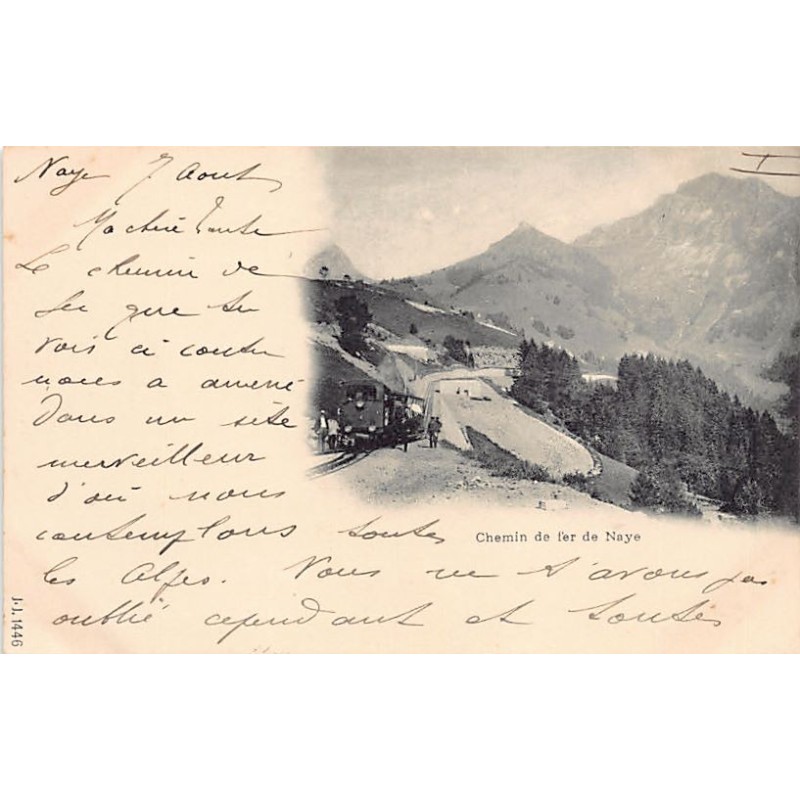 Naye 7 Aout
Ma chère Tante
Le chemin de
fer que tu
vois ci contre
nous a amené
dans un site
merveilleux
d'où nous
contemplons toutes
les Alpes. Nous ne t'avons pas
oublié cependant et toutes
Chemin de fer de Naye
J.J. 1446